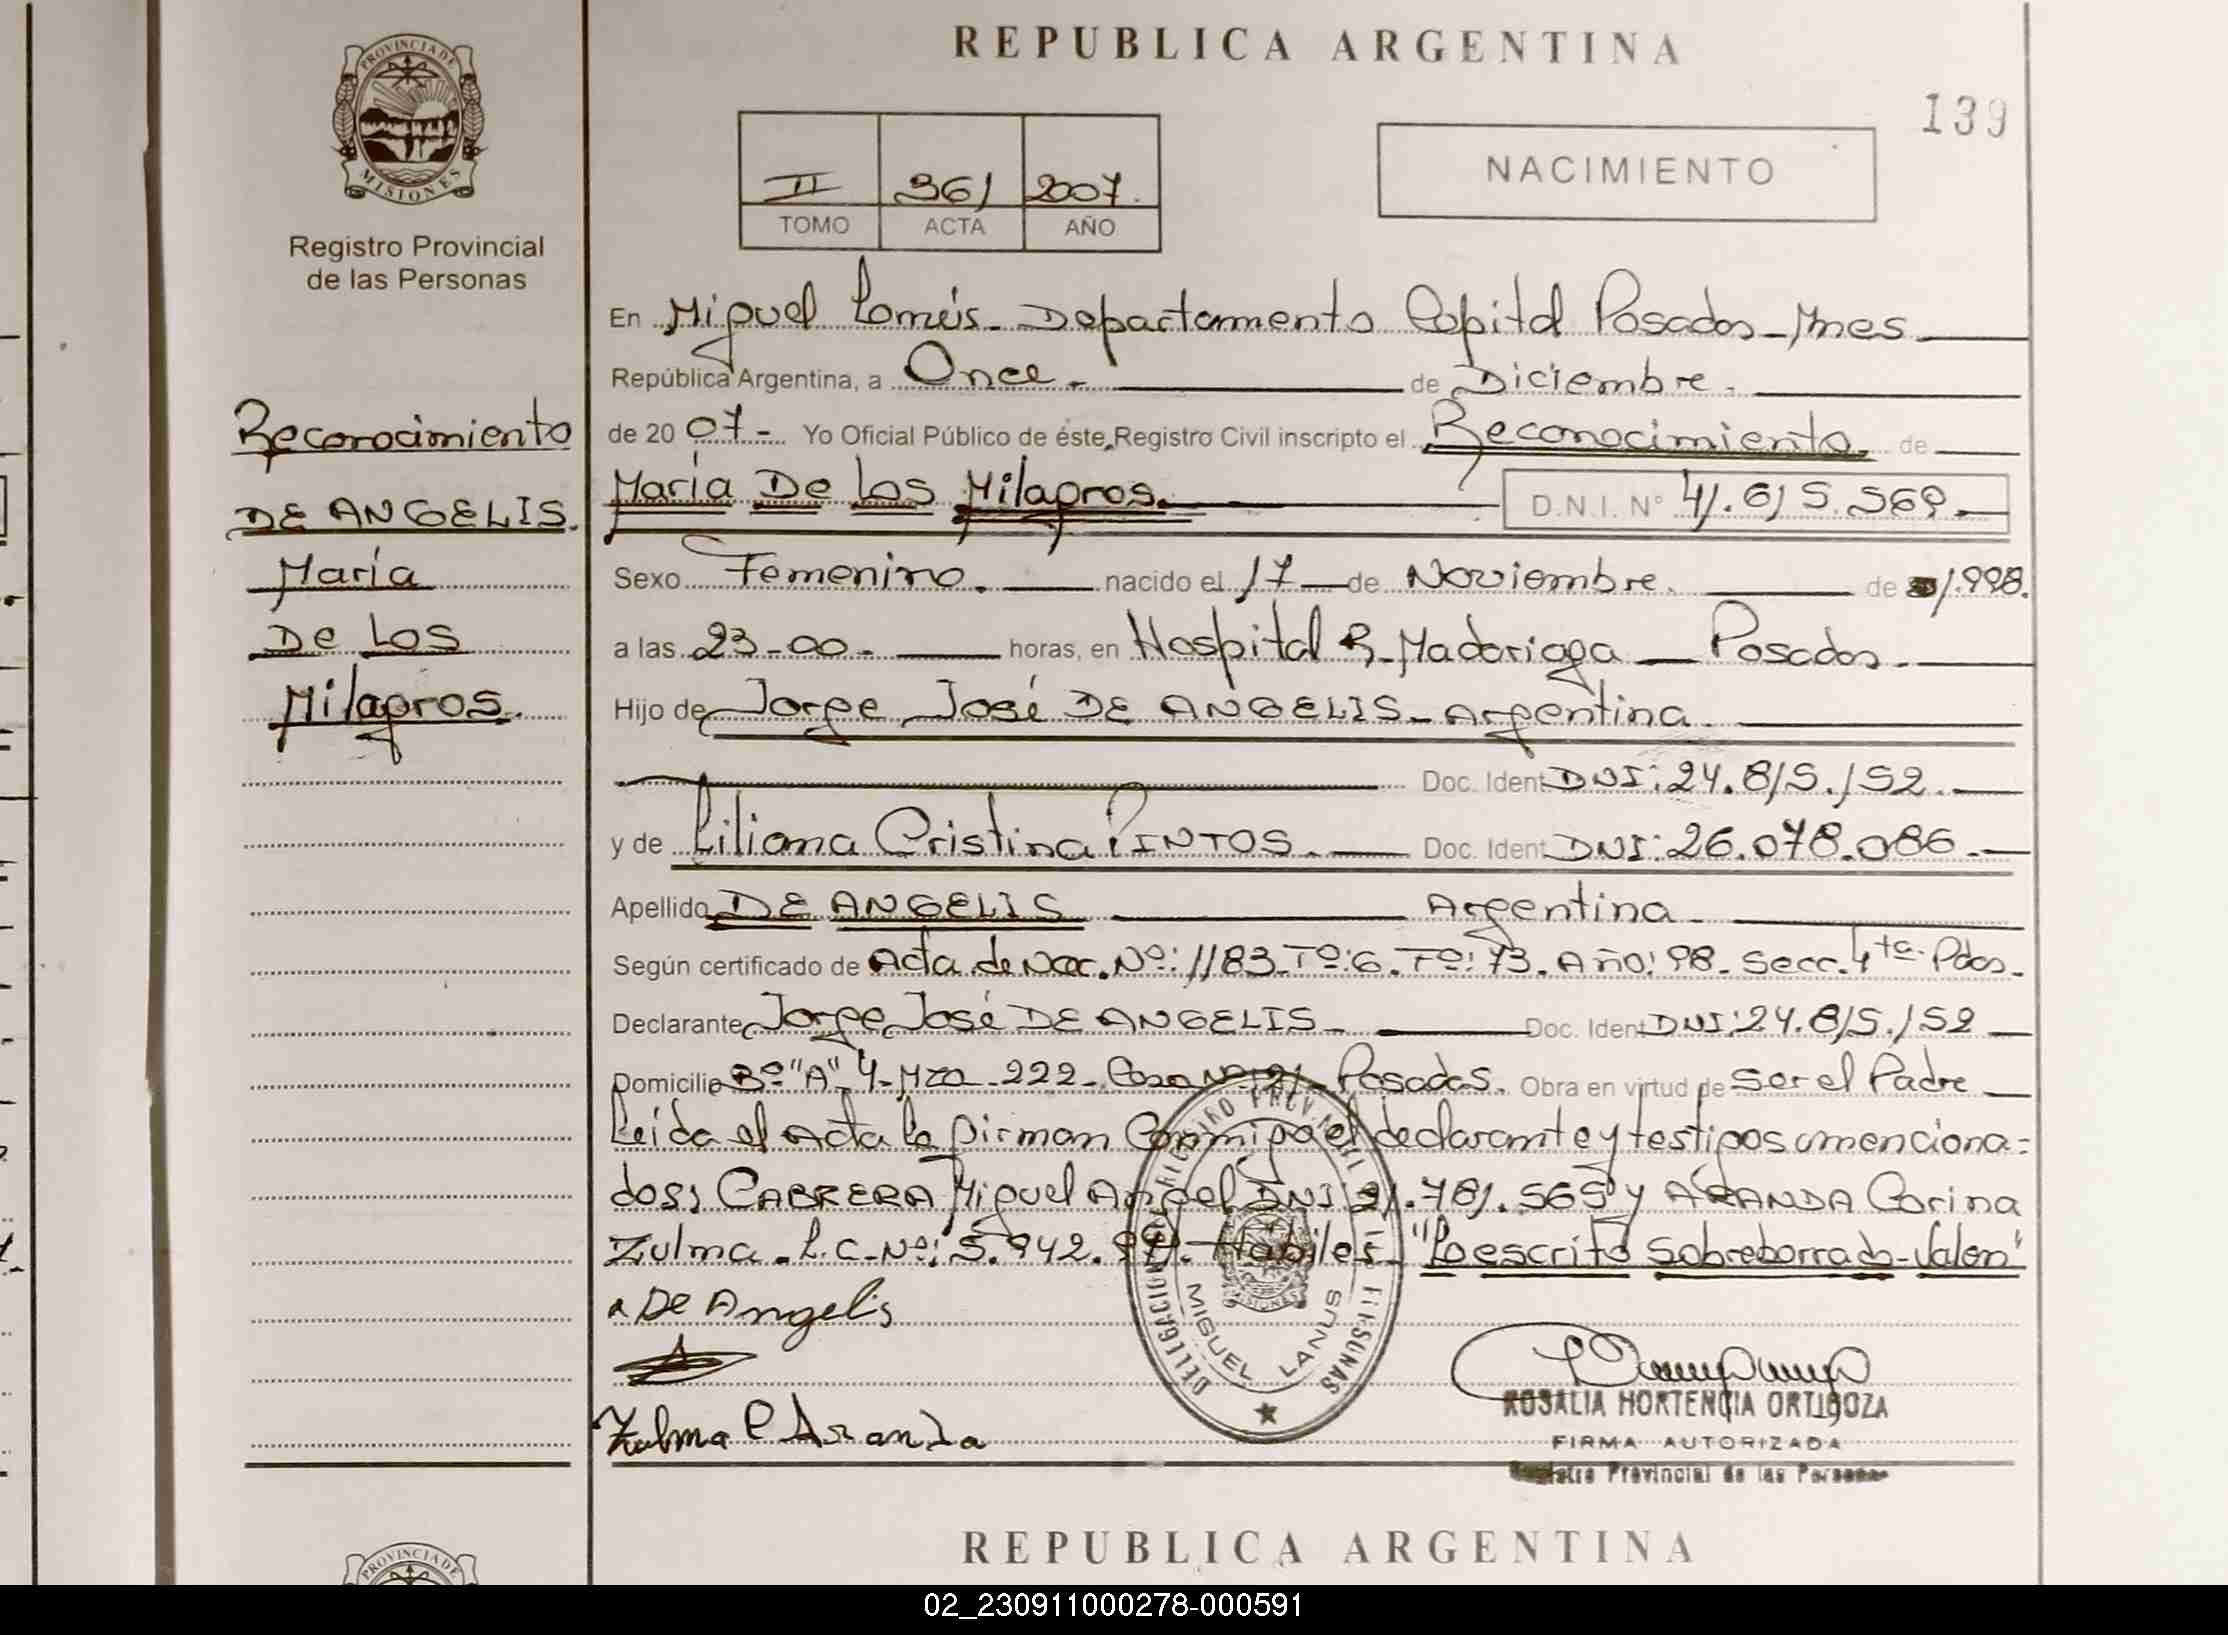 REPUBLICA ARGENTINA
139
PROVINCIA DE
MISIONES
Registro Provincial
de las Personas
II 361 2007.
TOMO ACTA AÑO
NACIMIENTO
En Miguel Lanús - Departamento Capital Posadas - Mnes
República Argentina, a Once. de Diciembre.
de 20 07 - Yo Oficial Público de éste Registro Civil inscripto el Reconocimiento de
María De Los Milagros. D.N.I. N° 41.615.569.
Reconocimiento
DE ANGELIS.
María
De Los
Milagros.
Sexo Femenino. nacido el 17 de Noviembre. de 1.998.
a las 23-00. horas, en Hospital R. Madariaga - Posadas.
Hijo de Jorge José DE ANGELIS - Argentina.
Doc. Ident DNI: 24.815.152.
y de Liliana Cristina PINTOS. Doc. Ident DNI: 26.078.086.
Apellido DE ANGELIS Argentina
Según certificado de Acta de Nac. Nº: 1183. Tº: 6. Fº: 73. Año: 98. Secc. 4ta. Pdas.
Declarante Jorge José DE ANGELIS Doc. Ident DNI: 24.815.152
Domicilio Bº "A" 4 - Mza - 222 - Casa Nº 121 - Posadas. Obra en virtud de Ser el Padre
Leída el Acta la firman Conmigo el declarante y testigos amenciona=
dos; CABRERA Miguel Angel DNI: 21.781.565 y ARANDA Corina
Zulma. L.C. Nº: 5.942. Habiles - "Lo escrito Sobreborrado - Valen"
De Angelis
Zulma C Aranda
DELEGACION
MIGUEL LANUS
ROSALIA HORTENCIA ORTIGOZA
FIRMA AUTORIZADA
Registro Provincial de las Personas
REPUBLICA ARGENTINA
PROVINCIA DE
02_230911000278-000591